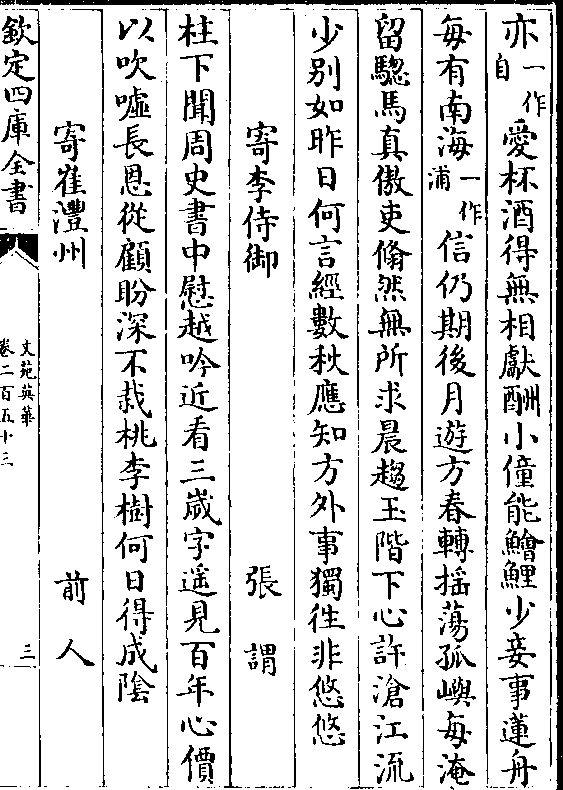 亦一作自愛杯酒得無相獻酬小僮能鱠鯉少妾事蓮舟
每有南海一作浦信仍期後月遊方春轉揺蕩孤嶼每淹
留驄馬真傲吏翛然無所求晨趨玉階下心許滄江流
少别如昨日何言經數秋應知方外事獨徃非悠悠
寄李侍御 張謂
柱下聞周史書中慰越吟近看三歳字遥見百年心價
以吹嘘長恩從顧盼深不栽桃李樹何日得成陰
寄崔灃州 前人
欽定四庫全書
文苑英華
卷二百五十三
三